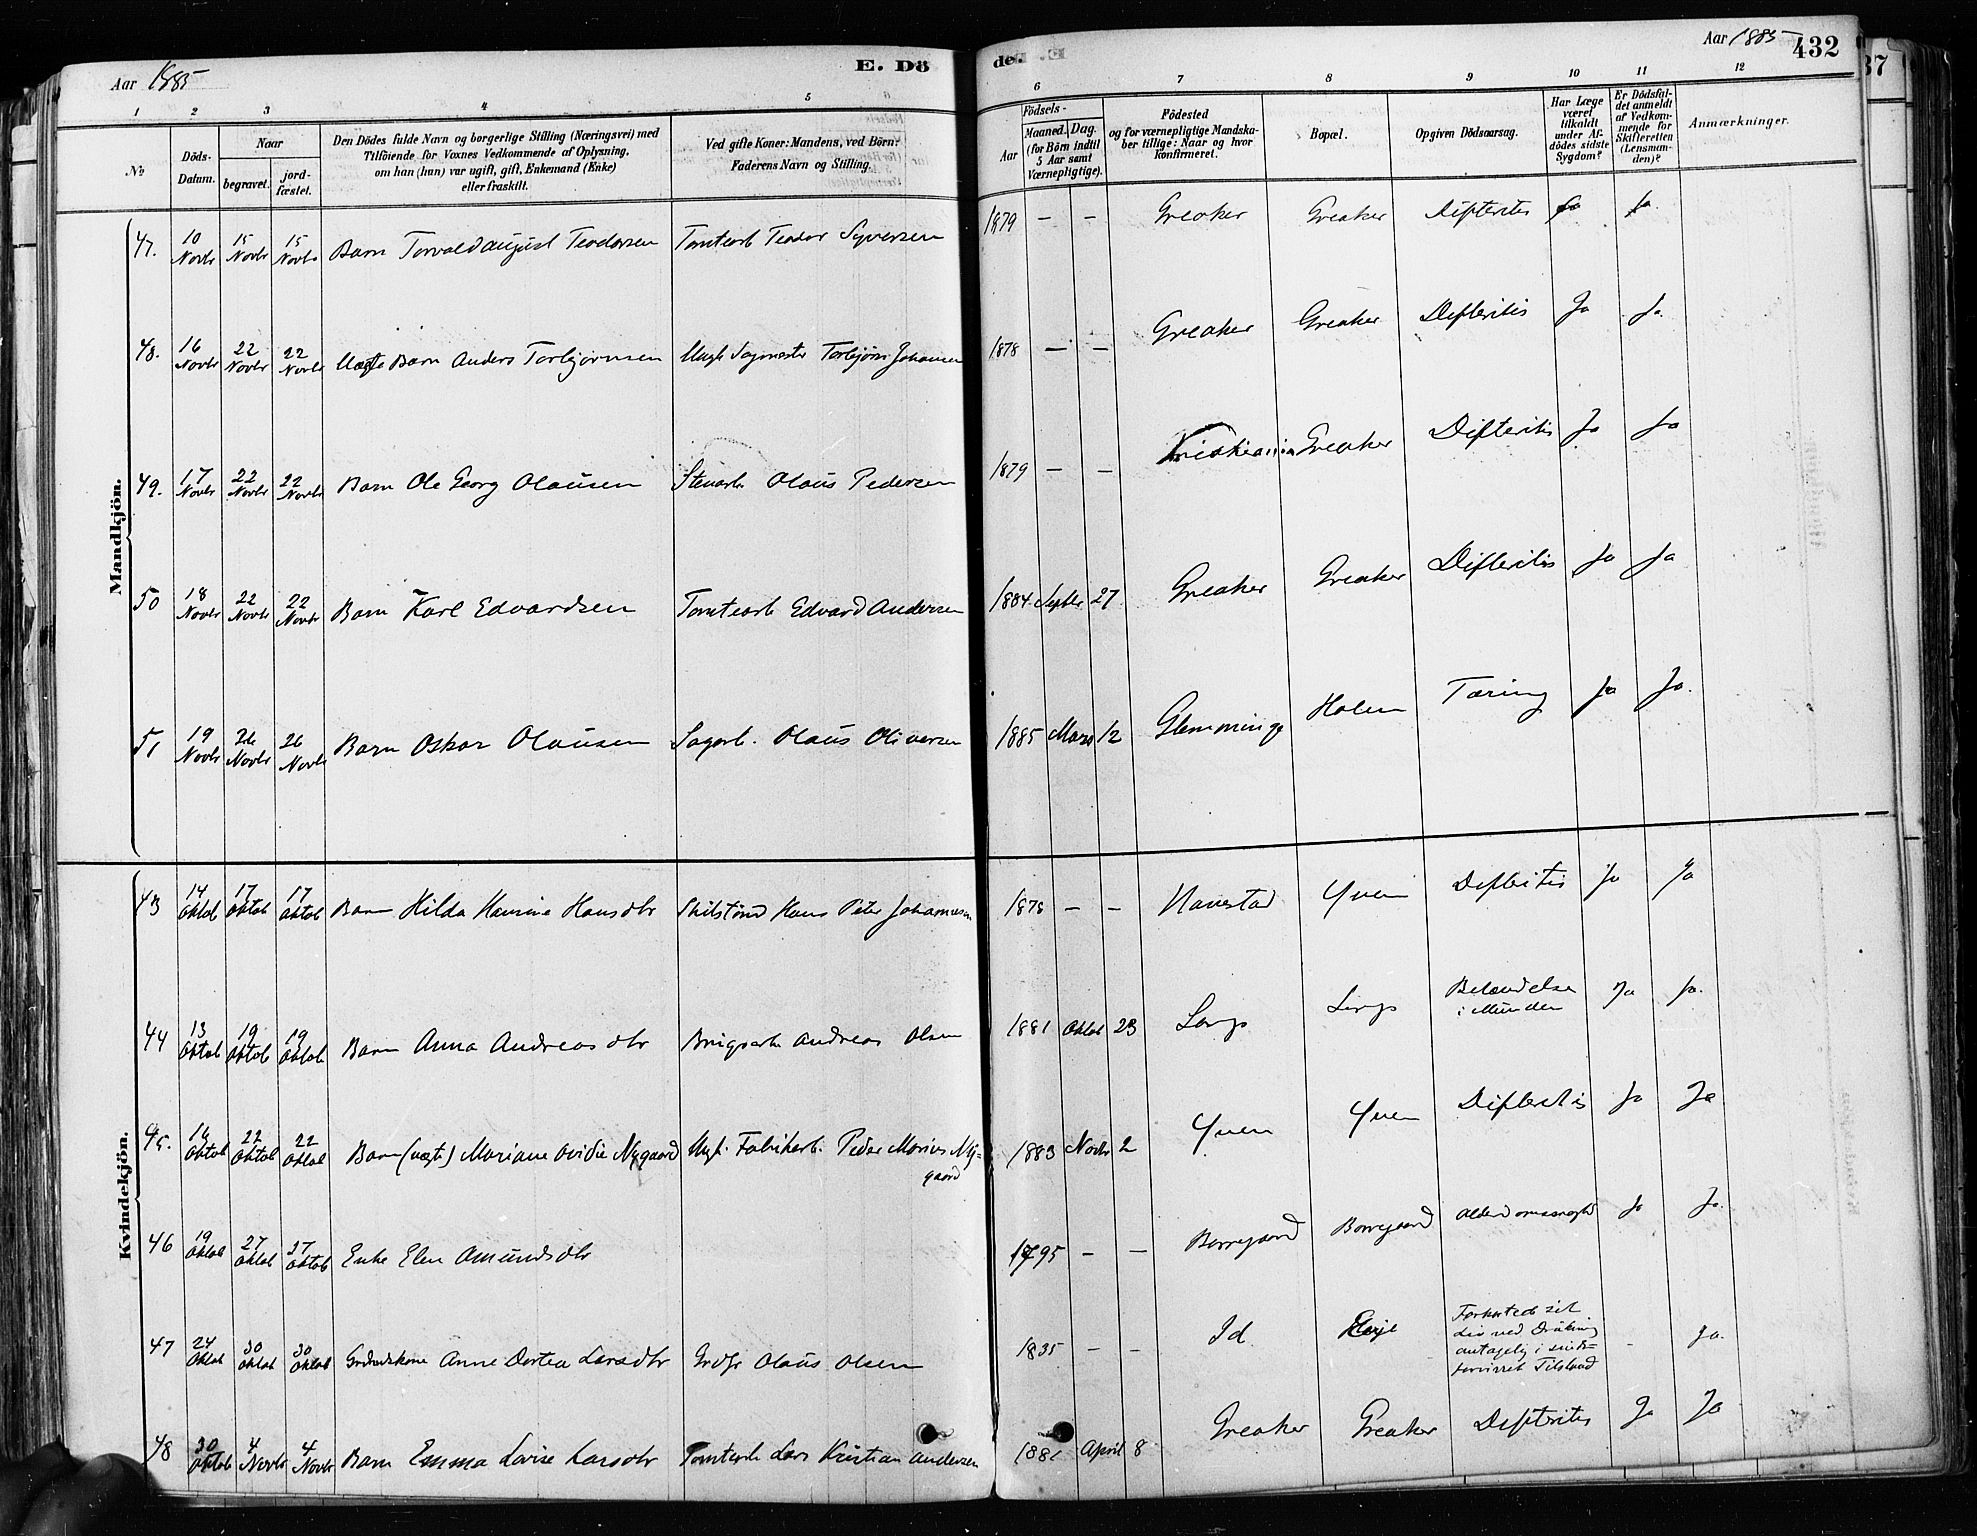 Aar 1885 E. Dö
de. Aar 1885 432
37
1 2 3 4 5
6 7 8 9 10 11 12
No
Döds-Datum.
Naar
begravet.
jord-fæstet.
Den Dödes fulde Navn og borgerlige Stilling (Næringsvei) med
Tilföiende for Voxnes Vedkommende af Oplysning,
om han (hun) var ugift, gift, Enkemand (Enke)
eller fraskilt.
Ved gifte Koner: Mandens, ved Börn:
Faderens Navn og Stilling.
Födsels-
Aar
Maaned. Dag.
(for Börn indtil
5 Aar samt
Værnepligtige).
Födested
og for værnepligtige Mandska-
ber tillige: Naar og hvor
konfirmeret.
Bopæl.
Opgiven Dödsaarsag.
Har Læge
været
tilkaldt
under Af-
dödes sidste
Sygdom?
Er Dödsfal-
det anmeldt
af Vedkom-
mende for
Skifteretten
(Lensman-
den)?
Anmærkninger.
Mandkjön.
47. 10 Novbr 15 Novbr 15 Novbr Barn Torvald August Teodorsen Tomtearb Teodor Syversen 1879 – – Greaker Greaker Difteritis Ja Ja.
48. 16 Novbr 22 Novbr 22 Novbr Uægte Barn Anders Torbjørnsen Ungk Sagmester Torbjørn Johansen 1878 – – Greaker Greaker Difteritis Ja Ja.
49. 17 Novbr 22 Novbr 22 Novbr Barn Ole Georg Olausen Stenarb. Olaus Pedersen 1879 – – Kristiania Greaker Difteritis Ja Ja
50 18 Novbr 22 Novbr 22 Novbr Barn Karl Edvardsen Tomtearb Edvard Andersen 1884 Septbr 27 Greaker Greaker Difteritis Ja Ja
51 19 Novbr 26 Novbr 26 Novbr Barn Oskar Olausen Sagarb. Olaus Oliversen 1885 Mars 12 Glemminge Holen Tæring Ja Ja.
Kvindekjön.
43 14 Oktob 17 Oktob 17 Oktob Barn Hilda Hansine Hansdtr Hans Peter Johannesen 1878 – – Navestad Yven Difteritis Ja Ja
44 13 Oktob 19 Oktob 19 Oktob Barn Anna Andreasdtr Brugsarb Andreas Olsen 1881 Oktob 23 Betændelse
i Munden Ja Ja.
45. 16 Oktob 22 Oktob 22 Oktob Barn (uægt.) Mariane Ovidie Nygaard Ungk. Fabrikarb. Peder Marius Ny-
gaard 1883 Novbr 2 Yven Yven Difteritis Ja Ja
46 19 Oktob 27 Oktob 27 Oktob Enke Elen Amundsdtr 1795 – – Borregaard Borregaard Alderdomssvaghed Ja Ja.
47 24 Oktob 30 Oktob 30 Oktob Grdbrdskone Anne Dortea Larsdtr Grdbr Olaus Olsen 1835 – – Id Forkortede sit
Liv ved Drukning
antagelig i sinds-
forvirret Tilstand – Ja.
48 30 Oktob 4 Novbr 4 Novbr Barn Emma Lovise Larsdtr Tomtearb Lars Kristian Andersen 1881 April 8 Greaker Greaker Difteritis Ja Ja